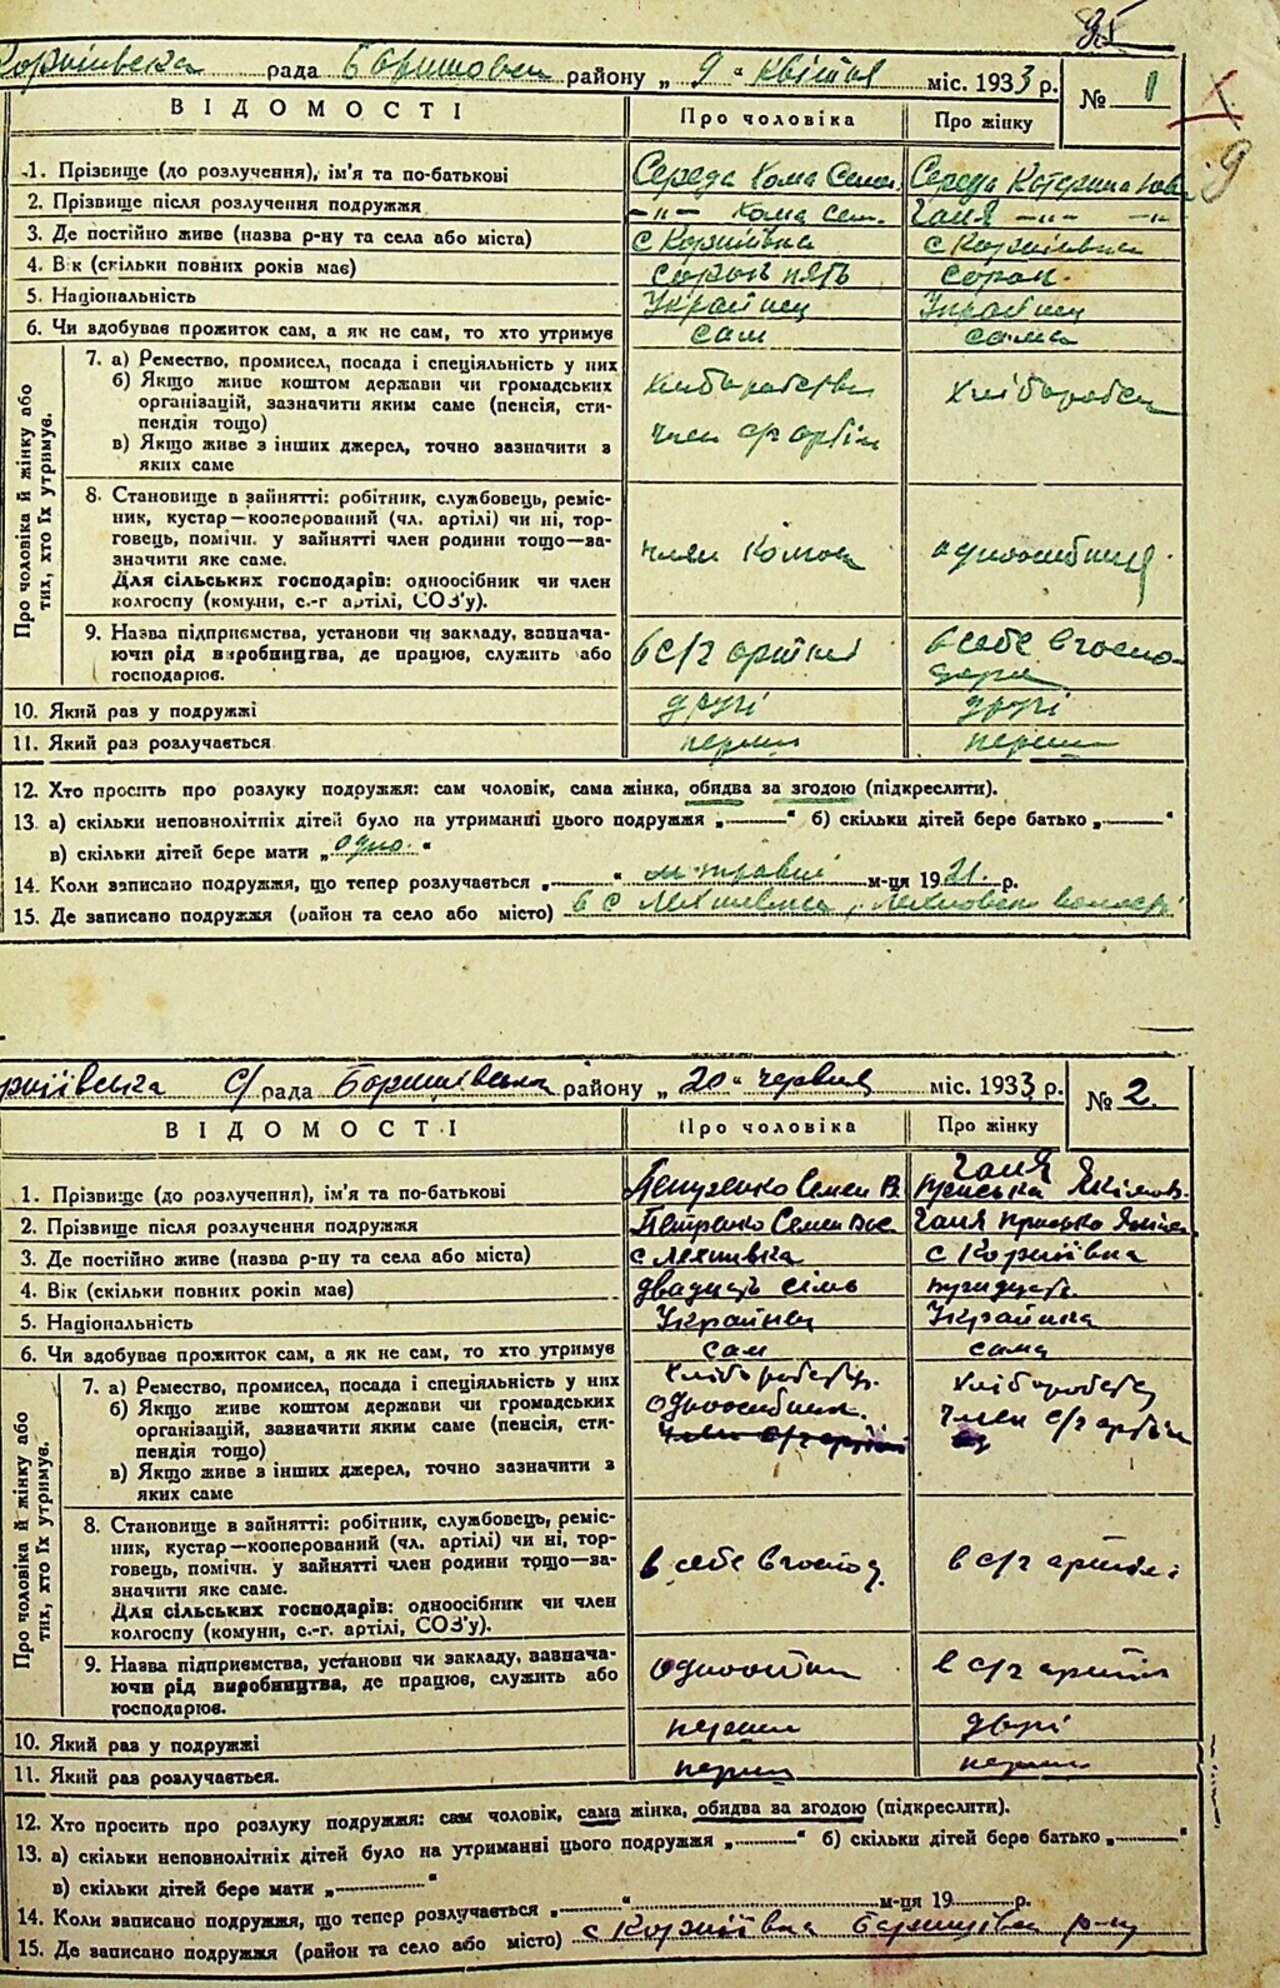 95
Коржиївска рада Баришовськ району „ 9 “ квітня міс. 1933 р.
№ 1
9
ВІДОМОСТІ Про чоловіка Про жінку
1. Прізвище (до розлучення), ім'я та по-батькові Середа Хома Семен. Середа Катерина
2. Прізвище після розлучення подружжя —„— Хома Сем. Ганя —„— —„—
3. Де постійно живе (назва р-ну та села або міста) с Коржиївка с Коржиївка
4. Вік (скільки повних років має) сорок пять сорок.
5. Національність Українец Українец
6. Чи здобував прожиток сам, а як не сам, то хто утримує сам сама
Про чоловіка й жінку або тих, хто їх утримує.
7. а) Ремество, промисел, посада і спеціяльність у них
б) Якщо живе коштом держави чи громадських
організацій, зазначити яким саме (пенсія, сти-
пендія тощо)
в) Якщо живе з інших джерел, точно зазначити з
яких саме
член с/г артіл
8. Становище в зайнятті: робітник, службовець, реміс-
ник, кустар—кооперований (чл. артілі) чи ні, тор-
говець, помічн. у зайнятті член родини тощо—за-
значити яке саме.
Для сільських господарів: одноосібник чи член
колгоспу (комуни, с.-г артілі, СОЗ'у).
член
9. Назва підприємства, установи чи закладу, зазнача-
ючи рід виробництва, де працює, служить або
господарює.
в с/г артілі в себе в госпо-
10. Який раз у подружжі другі другі
11. Який раз розлучається перши перши
12. Хто просить про розлуку подружжя: сам чоловік, сама жінка, обидва за згодою (підкреслити).
13. а) скільки неповнолітніх дітей було на утриманні цього подружжя „———“ б) скільки дітей бере батько „———“
в) скільки дітей бере мати „одно.“
14. Коли записано подружжя, що тепер розлучається „———“ травні м-ця 1921. р.
15. Де записано подружжя (район та село або місто) в с
с/рада Баришівська району „ 20 “ червня міс. 1933 р.
№ 2.
ВІДОМОСТІ Про чоловіка Про жінку
1. Прізвище (до розлучення), ім'я та по-батькові Семен В. Ганя Якімов.
2. Прізвище після розлучення подружжя Петренко Семен Вас Ганя
3. Де постійно живе (назва р-ну та села або міста) с Лехнівка с Коржиївка
4. Вік (скільки повних років має) двадцать сімь
5. Національність Українец Українка
6. Чи здобував прожиток сам, а як не сам, то хто утримує сам сама
Про чоловіка й жінку або тих, хто їх утримує.
7. а) Ремество, промисел, посада і спеціяльність у них
б) Якщо живе коштом держави чи громадських
організацій, зазначити яким саме (пенсія, сти-
пендія тощо)
в) Якщо живе з інших джерел, точно зазначити з
яких саме
член с/г артілі
член с/г артіл
8. Становище в зайнятті: робітник, службовець, реміс-
ник, кустар—кооперований (чл. артілі) чи ні, тор-
говець, помічн. у зайнятті член родини тощо—за-
значити яке саме.
Для сільських господарів: одноосібник чи член
колгоспу (комуни, с.-г. артілі, СОЗ'у).
в себе в господ. в с/г артілі
9. Назва підприємства, установи чи закладу, зазнача-
ючи рід виробництва, де працює, служить або
господарює.
в с/г артіл
10. Який раз у подружжі перши другі
11. Який раз розлучається. перши перши
12. Хто просить про розлуку подружжя: сам чоловік, сама жінка, обидва за згодою (підкреслити).
13. а) скільки неповнолітніх дітей було на утриманні цього подружжя „———“ б) скільки дітей бере батько „———“
в) скільки дітей бере мати „———“
14. Коли записано подружжя, що тепер розлучається „———“ м-ця 19 р.
15. Де записано подружжя (район та село або місто) с Коржиївка Баришівск р-ну